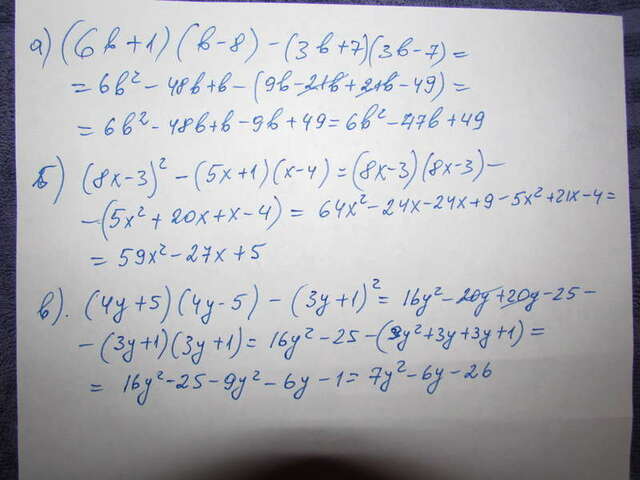 а) (6b+1)(b-8)-(3b+7)(3b-7)=
=6b²-48b+b-(9b-21b+21b-49)=
=6b²-48b+b-9b+49=6b²-47b+49
б) (8x-3)²-(5x+1)(x-4)=(8x-3)(8x-3)-
-(5x²+20x+x-4)=64x²-24x-24x+9-5x²+21x-4=
=59x²-27x+5
в). (4y+5)(4y-5)-(3y+1)²=16y²-20y+20y-25-
-(3y+1)(3y+1)=16y²-25-(9y²+3y+3y+1)=
=16y²-25-9y²-6y-1=7y²-6y-26